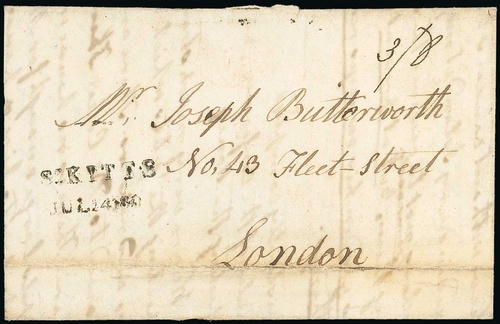 3/8
Mr. Joseph Butterworth
No. 43 Fleet-Street
St KITTS
London